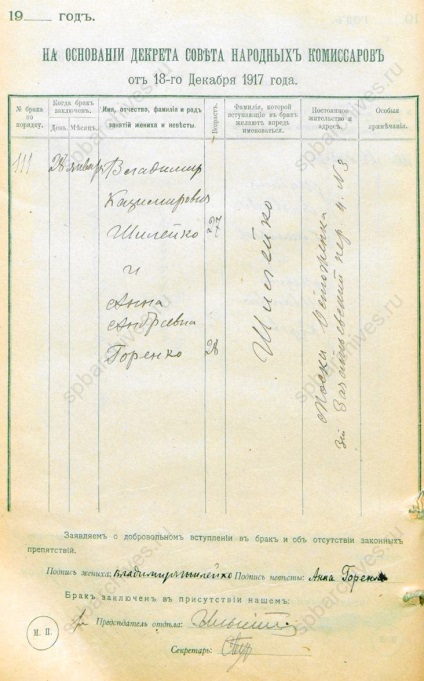 19___ годъ.
НА ОСНОВАНІИ ДЕКРЕТА СОВѢТА НАРОДНЫХЪ КОМИССАРОВЪ
отъ 18-го Декабря 1917 года.
№ брака по порядку.
Когда бракъ заключенъ.
День.
Мѣсяцъ.
Имя, отчество, фамилія и родъ занятій жениха и невѣсты.
Возрастъ.
Фамилія, которой вступающіе въ бракъ желаютъ впредь именоваться.
Постоянное жительство и адресъ.
Особыя примѣчанія.
111
28 январ
Владимир
Казимирович
Шилейко
27
и
Анна
Андреевна
Горенко
28
Шилейко
Москва Остоженка
3й Зачатьевский пер. д. № 3
Заявляем о добровольном вступленіи въ бракъ и объ отсутствіи законныхъ
препятствій.
Подпись жениха: Владимир Шилейко Подпись невѣсты: Анна Горенко
Бракъ заключенъ въ присутствіи нашемъ:
М. П.
Предсѣдатель отдѣла:
Секретарь:
spbarchives.ru